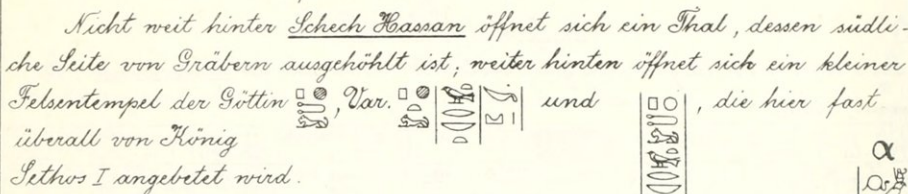 Nicht weit hinter Schech Hassan öffnet sich ein Thal, dessen südli-
che Seite von Gräbern ausgehöhlt ist; weiter hinten öffnet sich ein kleiner
Felsentempel der Göttin , Var. und , die hier fast
überall von König
α
Sethos I angebetet wird.